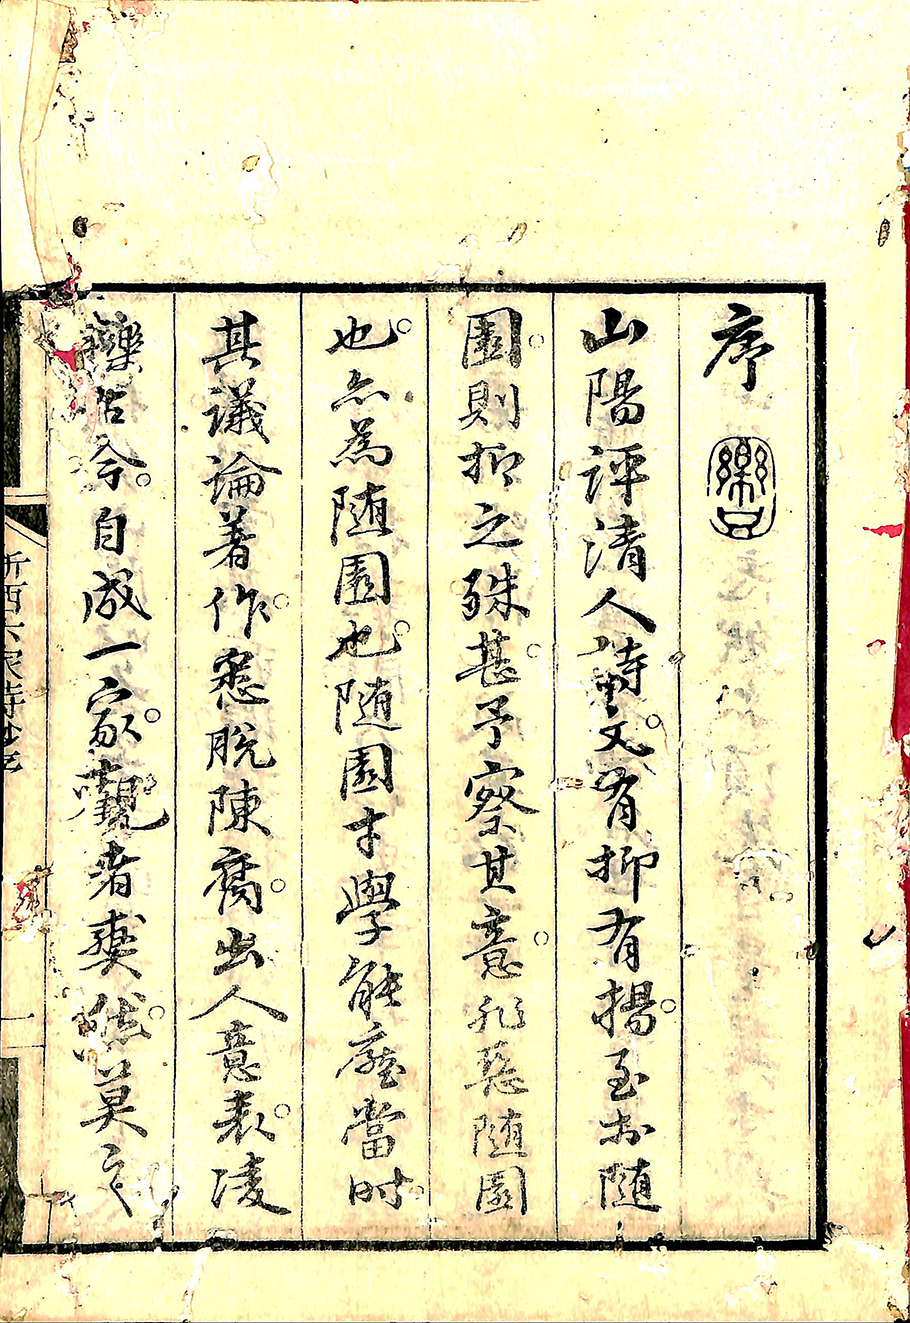 序
山陽評清人詩文。有抑有揚。至於随
園。則抑之殊甚。予察其意。非惡随園
也。亦為随園也。随園才學能壓當時。
其議論著作。悉脫陳腐。出人意表。凌
轢古今。自成一家。觀者爽然。莫之
浙西六家詩鈔 一